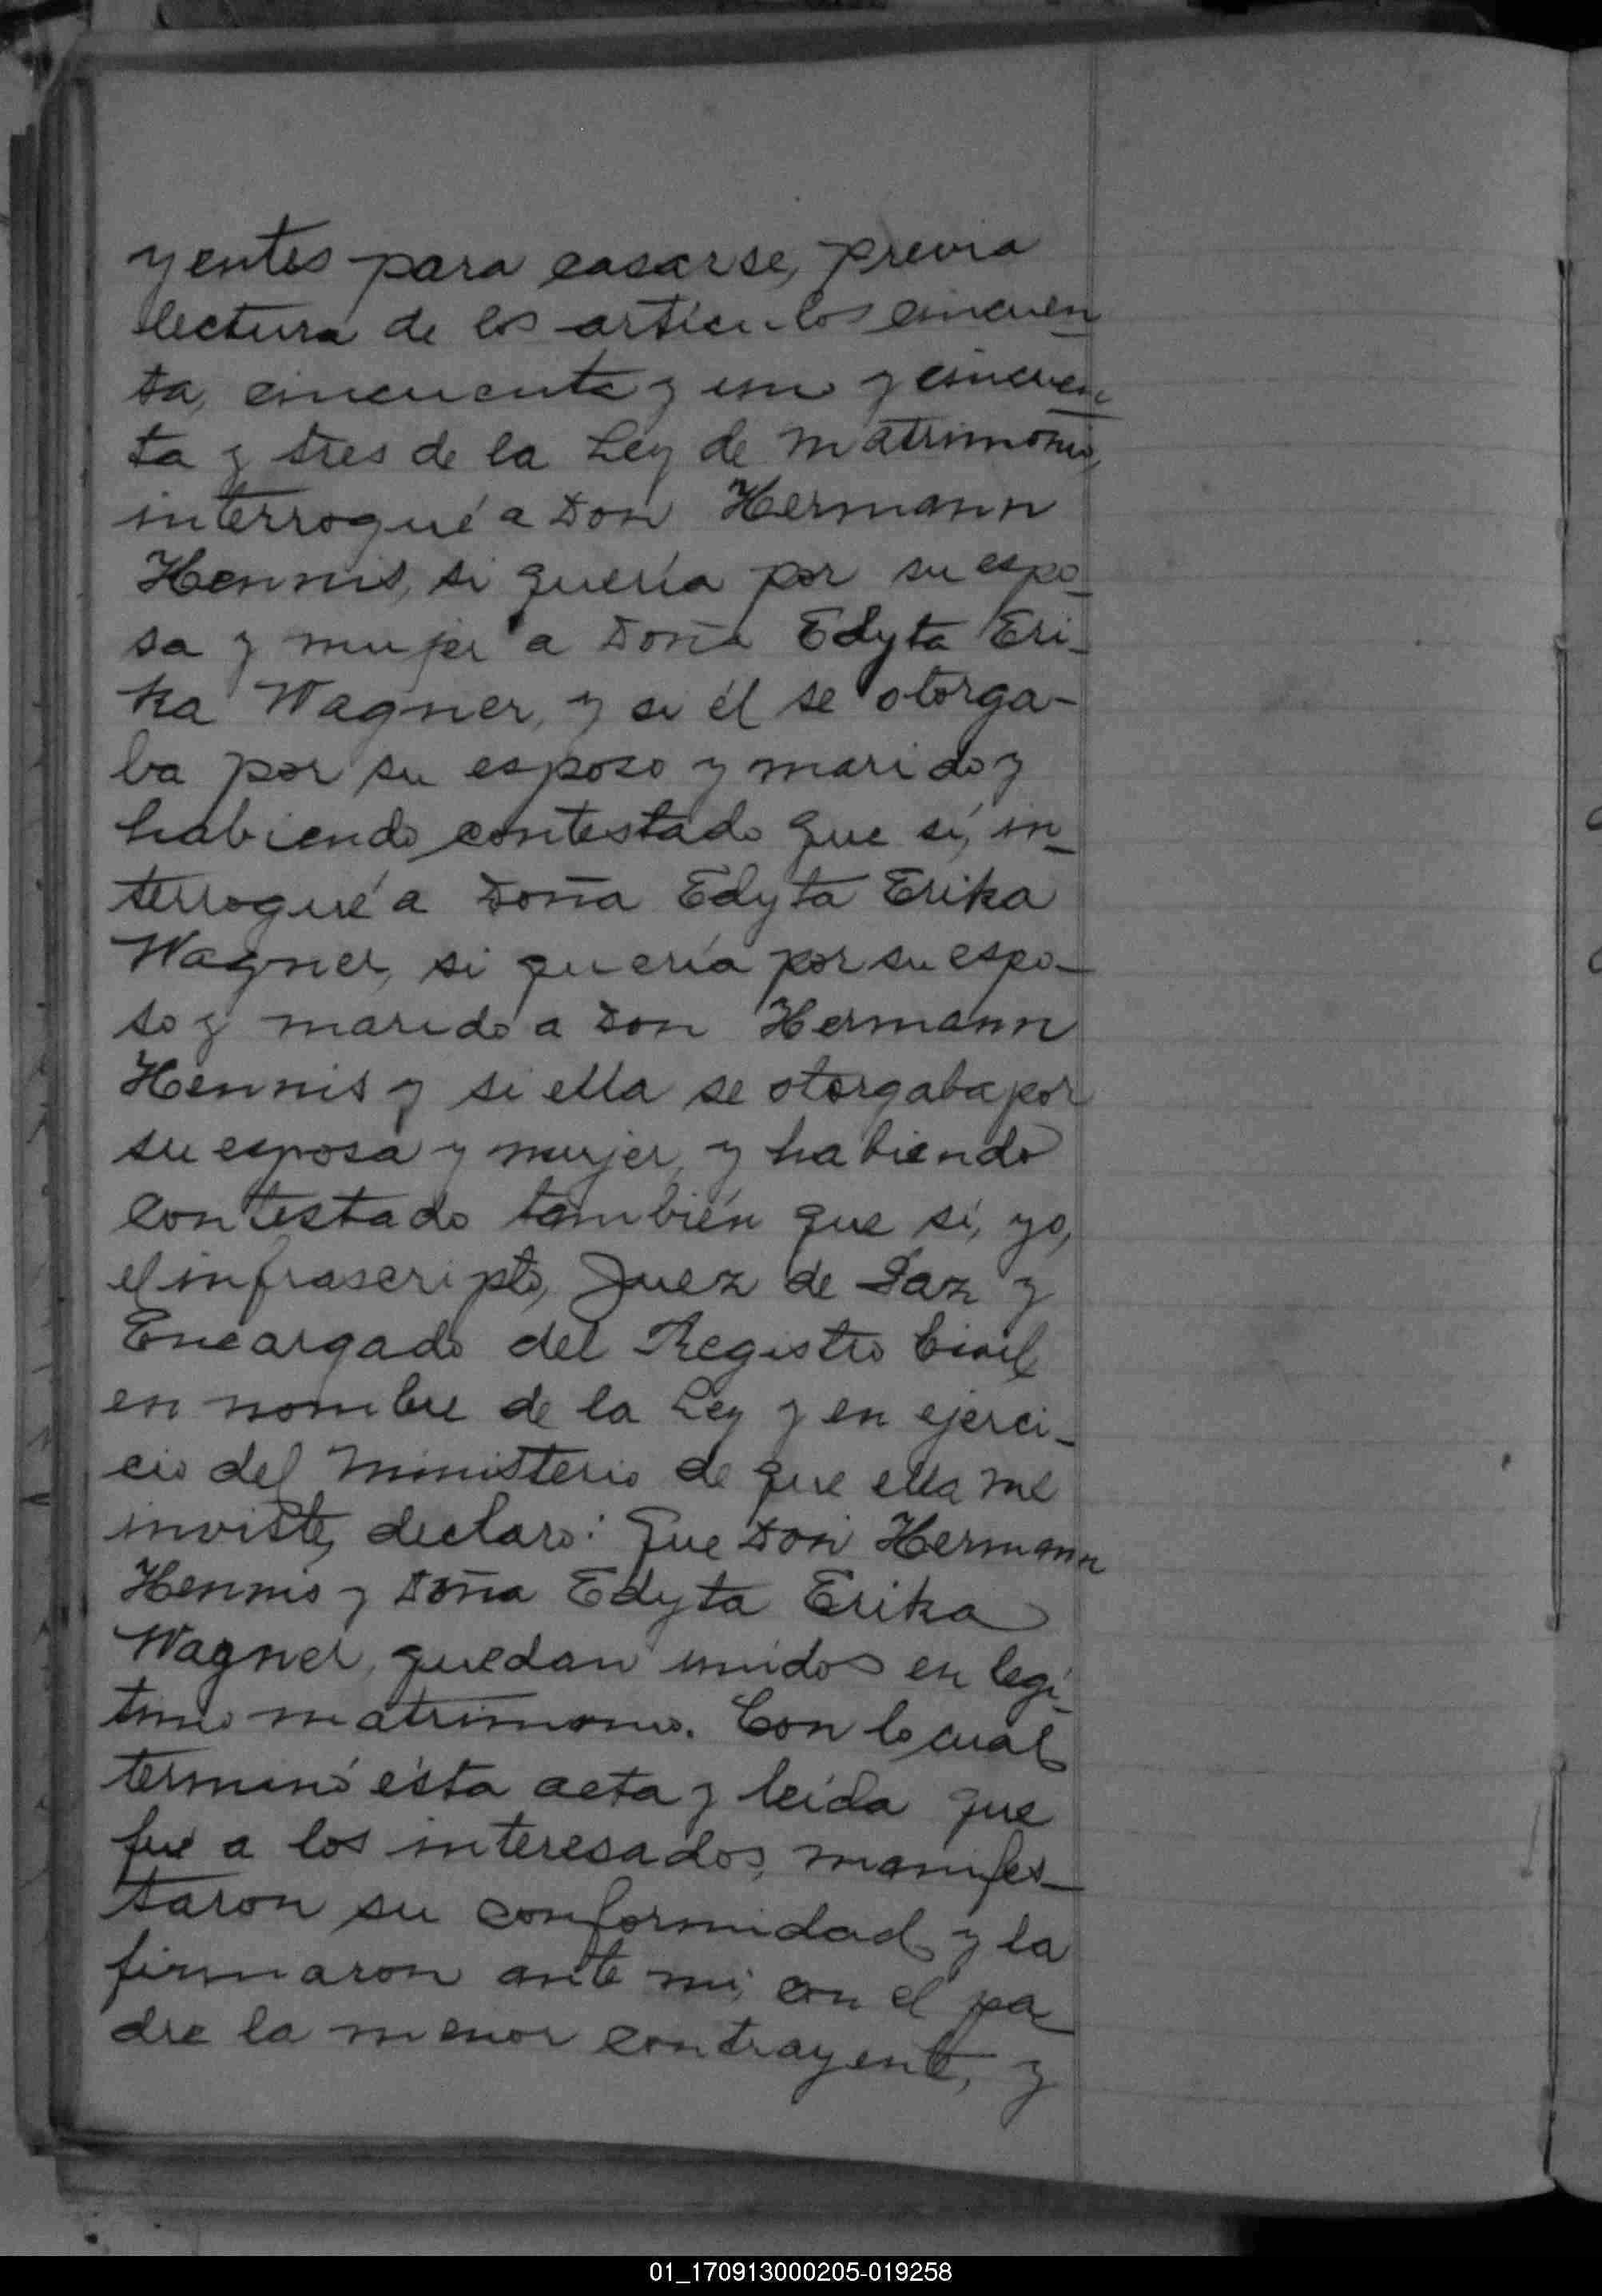 yentes para casarse, previa
lectura de los artículos cincuen
ta, cincuenta y uno y cincuen
ta y tres de la Ley de Matrimonio,
interrogué a Don Hermann
Hennis, si quería por su espo_
sa y mujer a Doña Edyta Eri_
ka Wagner, y si él se otorga-
ba por su esposo y marido y
habiendo contestado que sí, in_
terrogué a Doña Edyta Erika
Wagner, si quería por su espo-
so y marido a Don Hermann
Hennis y si ella se otorgaba por
su esposa y mujer, y habiendo
contestado también que sí, yo,
el infrascripto, Juez de Paz y
Encargado del Registro Civil,
en nombre de la Ley y en ejerci_
cio del Ministerio de que ella me
inviste, declaro: Que Don Hermann
Hennis y Doña Edyta Erika
Wagner, quedan unidos en legí_
timo matrimonio. Con lo cual
terminó ésta acta y leída que
fué a los interesados, manifes_
taron su conformidad y la
firmaron ante mi, con el pa_
dre la menor contrayente, y
01_170913000205-019258